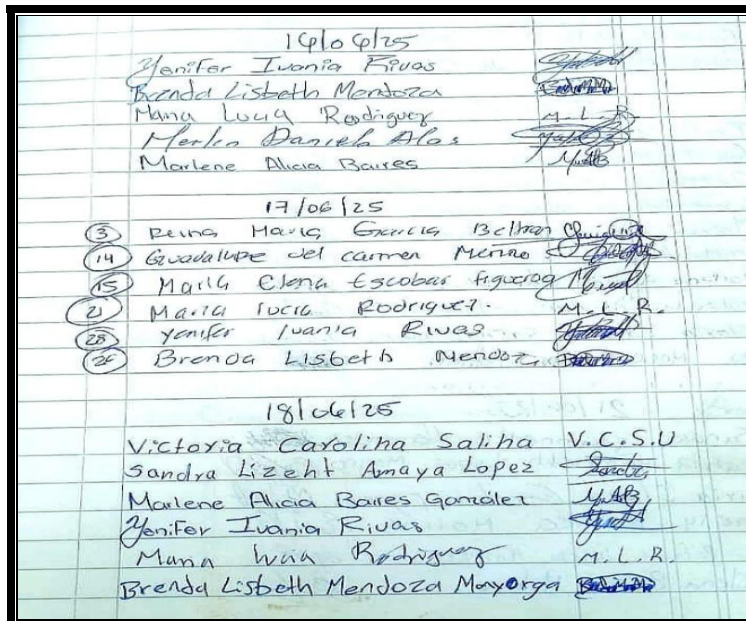 16/06/25
Yenifer Ivania Rivas
Brenda Lisbeth Mendoza
Maria Lucia Rodriguez M. L. R
Merlin Daniela Alas
Marlene Alicia Baires
17/06/25
3 Reina Maria Garcia Beltran
14 Guadalupe del carmen Merino
15 Maria Elena Escobar figueroa
21 Maria lucia Rodriguez. M. L. R.
28 yenifer Ivania Rivas
26 Brenda Lisbeth Mendoza
18/06/25
Victoria Carolina Salina V. C. S. U
Sandra Lizeht Amaya Lopez Sandra
Marlene Alicia Baires González
Yenifer Ivania Rivas
Maria lucia Rodriguez M. L. R.
Brenda Lisbeth Mendoza Mayorga